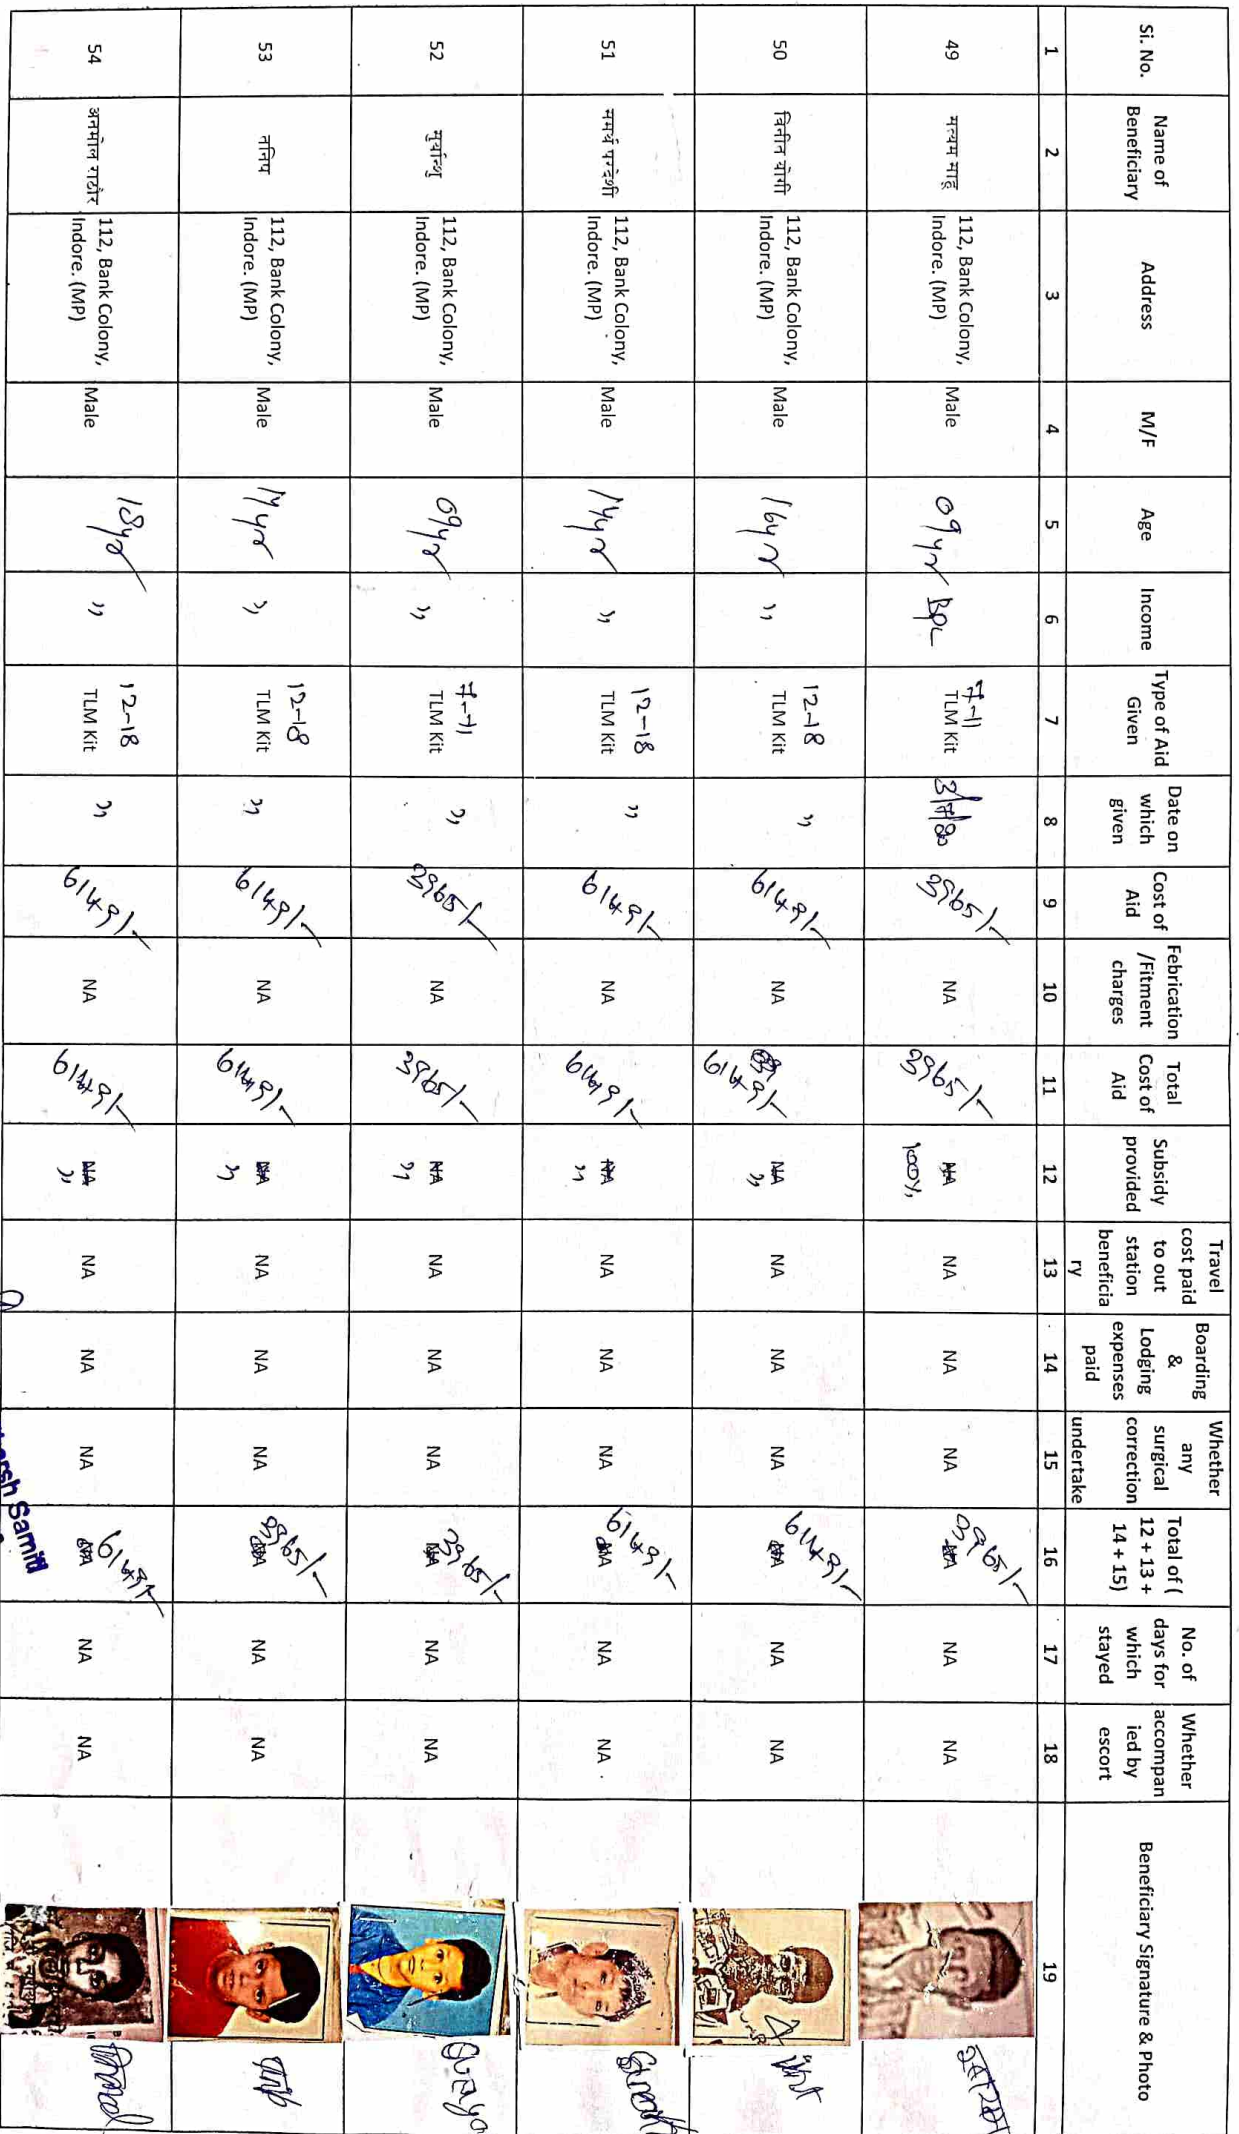 Si. No.
Name of
Beneficiary
Address
M/F
Age
Income
Type of Aid
Given
Date on
which
given
Cost of
Aid
Febrication
/Fitment
charges
Total
Cost of
Aid
Subsidy
provided
Travel
cost paid
to out
station
beneficia
ry
Boarding
&
Lodging
expenses
paid
Whether
any
surgical
correction
undertake
Total of (
12 + 13 +
14 + 15)
No. of
days for
which
stayed
Whether
accompan
ied by
escort
Beneficiary Signature & Photo
1 2 3 4 5 6 7 8 9 10 11 12 13 14 15 16 17 18 19
49
112, Bank Colony,
Indore. (MP)
Male
09yr
BPL
7-11
TLM Kit
3965/-
NA
3965/-
NA
100%
NA
NA
NA
3965/-
NA
NA
NA
50
विनीत योगी
112, Bank Colony,
Indore. (MP)
Male
16yr
"
12-18
TLM Kit
"
6149/-
NA
6149/-
NA
"
NA
NA
NA
6149/-
NA
NA
NA
51
समर्थ परदेशी
112, Bank Colony,
Indore. (MP)
Male
14yr
"
12-18
TLM Kit
"
6149/-
NA
6149/-
NA
"
NA
NA
NA
6149/-
NA
NA
NA
52
सुर्यान्शु
112, Bank Colony,
Indore. (MP)
Male
09yr
"
7-11
TLM Kit
"
3965/-
NA
3965/-
NA
"
NA
NA
NA
3965/-
NA
NA
NA
53
112, Bank Colony,
Indore. (MP)
Male
14yr
"
12-18
TLM Kit
"
6149/-
NA
6149/-
NA
"
NA
NA
NA
3965/-
NA
NA
NA
54
अनमोल राठौर
112, Bank Colony,
Indore. (MP)
Male
18yr
"
12-18
TLM Kit
"
6149/-
NA
6149/-
NA
"
NA
NA
NA
6149/-
NA
NA
NA
Samiti